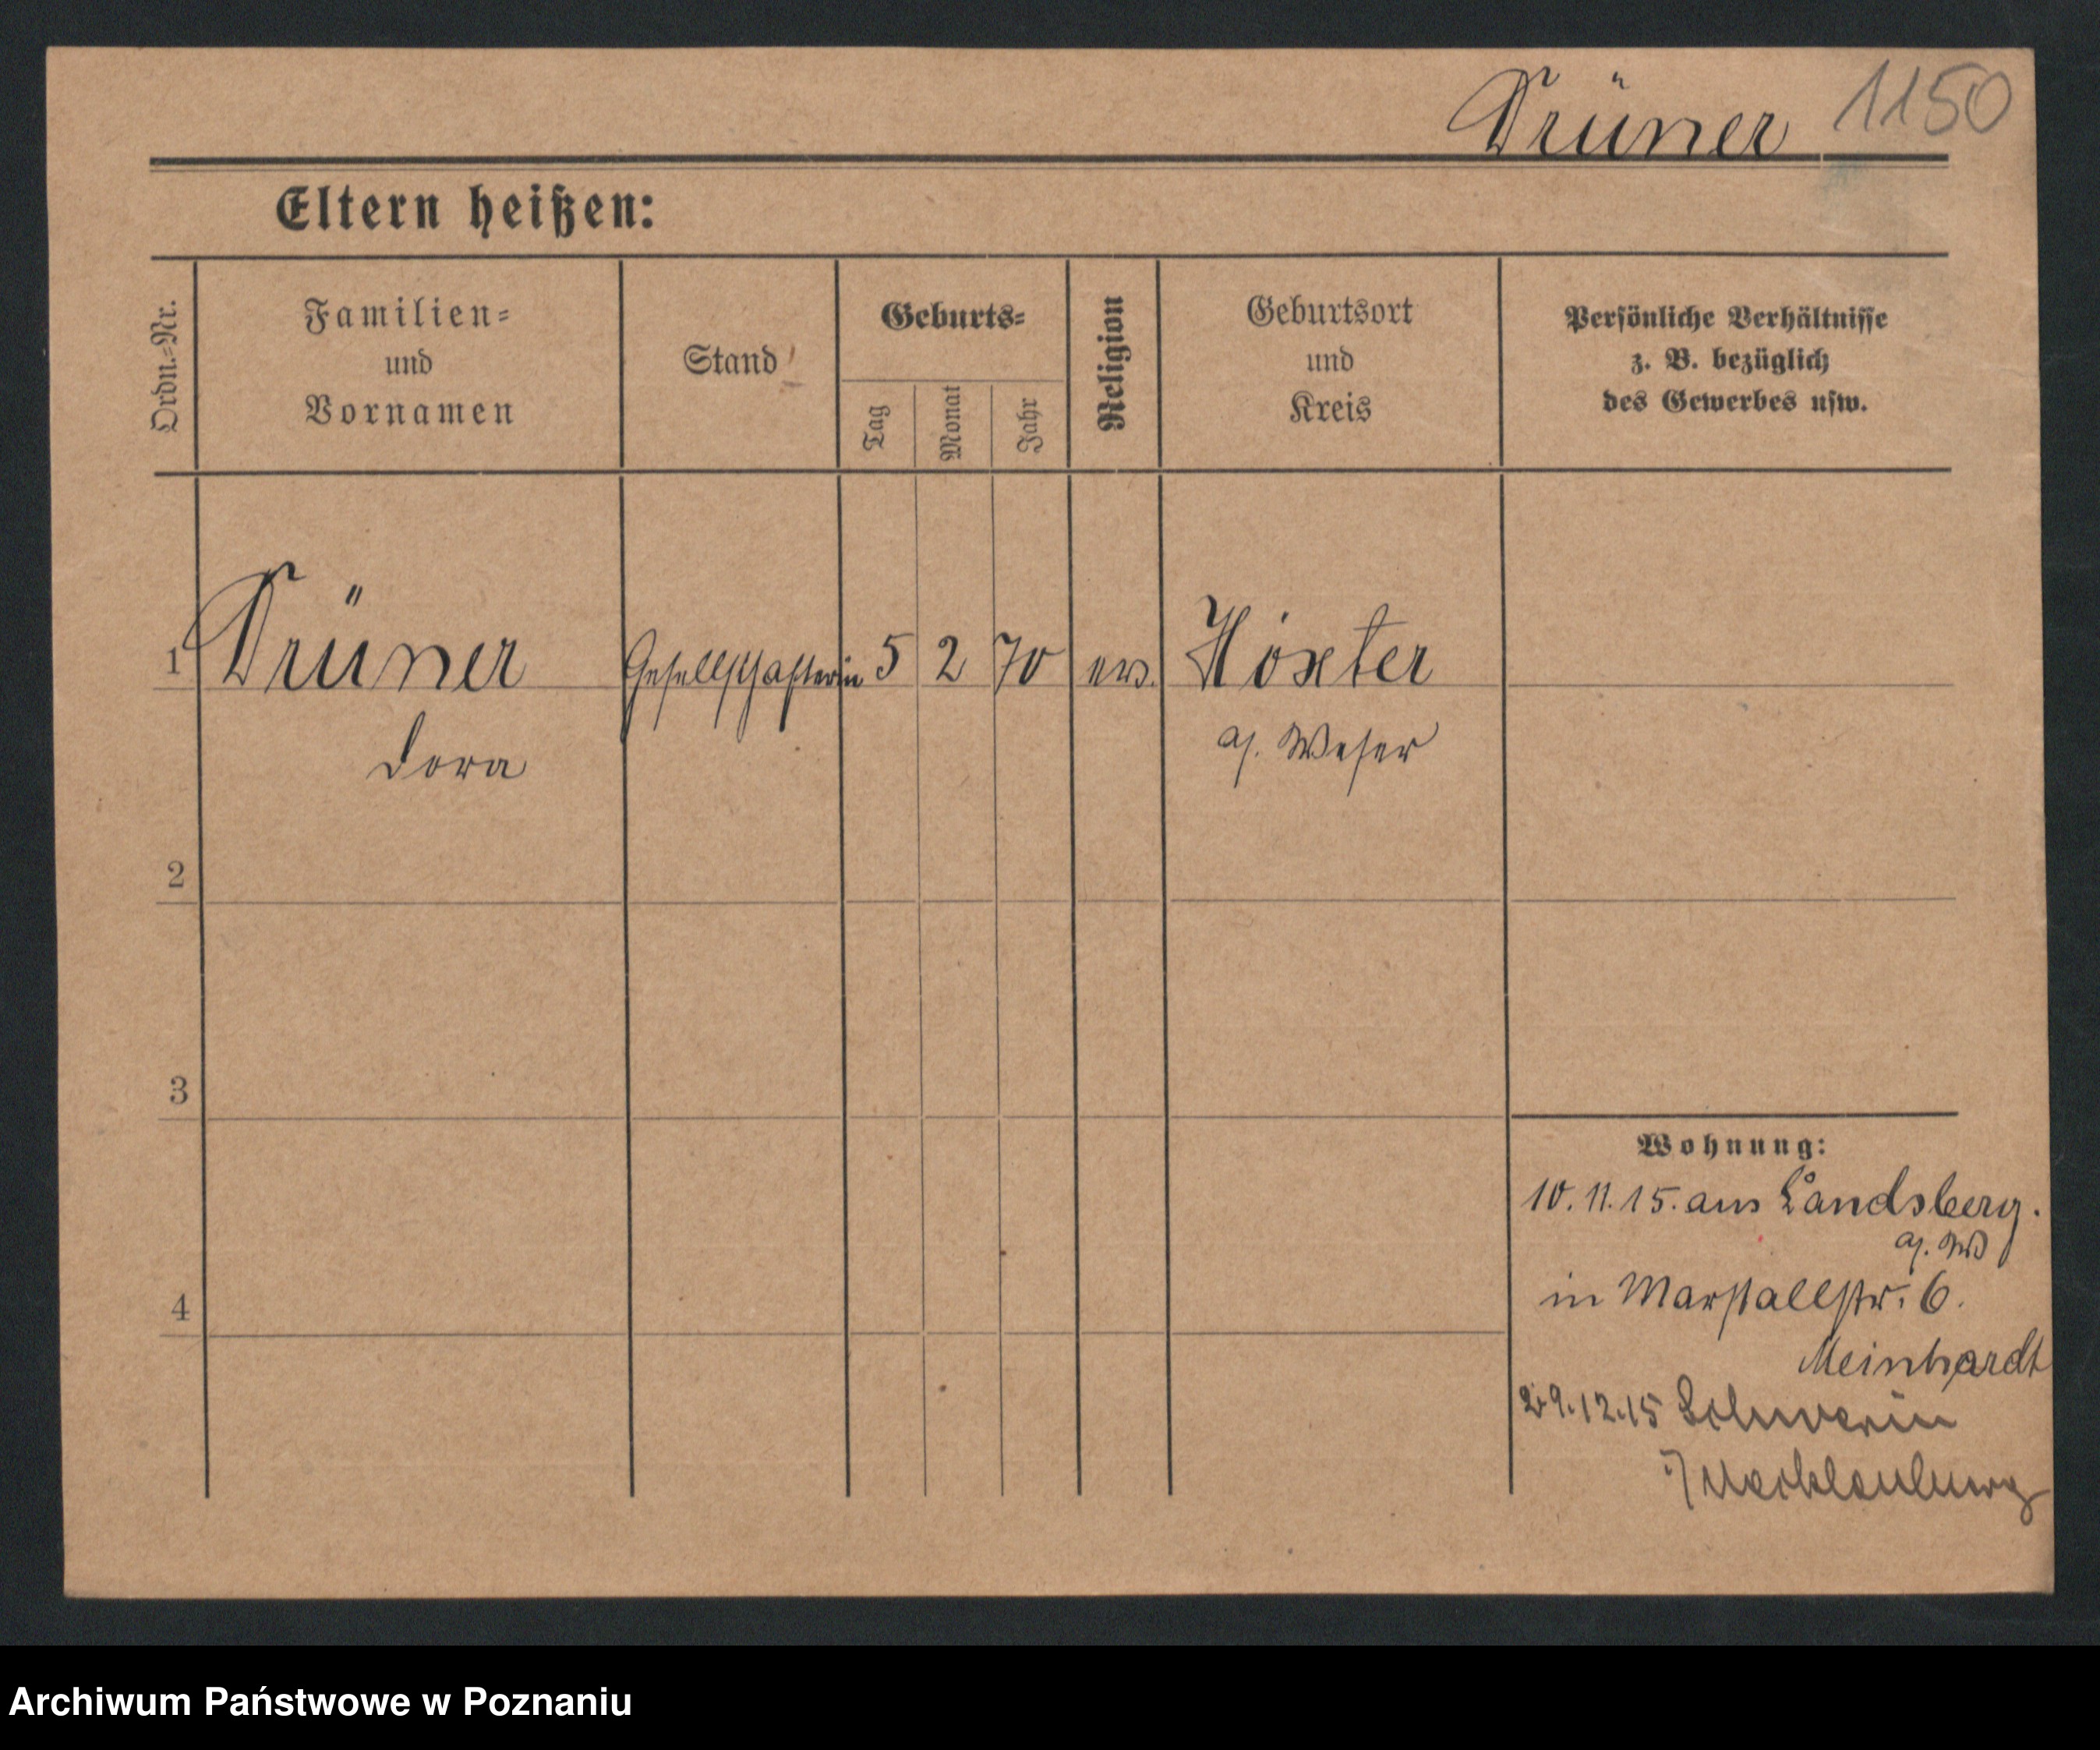 Drüner 1150
Eltern heißen:
Ordn.=Nr.
Familien=
und
Vornamen
Stand
Geburts=
Tag
Monat
Jahr
Religion
Geburtsort
und
Kreis
Persönliche Verhältnisse
z. B. bezüglich
des Gewerbes usw.
1 Drüner Gesellschafterin 5 2 70 ev. Höxter
Dora a/. Weser
2
3
4
Wohnung:
10.11.15. aus Landsberg.
a/. W
in Marstallstr. 6.
Meinhardt
29.12.15 Schwerin
i/ Mecklenburg
Archiwum Państwowe w Poznaniu